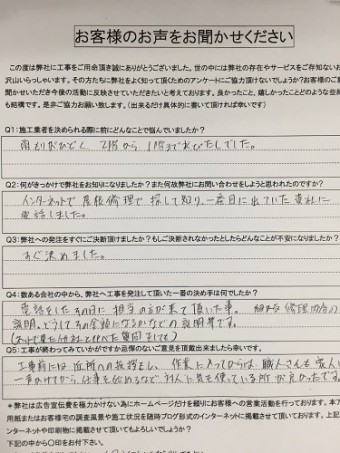 お客様のお声をお聞かせください
この度は弊社に工事をご用命頂き誠にありがとうございました。世の中には弊社の存在やサービスをご存知ないお
沢山いらっしゃいます。その方たちに弊社をよく知って頂くためのアンケートにご協力頂けないでしょうか？お客様のご意
聞かせいただき今後の活動に反映させていただきたいと考えております。良かったこと、嬉しかったことどのような些細
も結構です。是非ご協力お願い致します。（出来るだけ具体的に書いて頂ければ幸いです）
Q1:施工業者を決められる際に前にどんなことで悩んでいましたか？
雨もりがひどく、2階から1階まで
Q2:何がきっかけで弊社をお知りになりましたか？また何故弊社にお問い合わせをしようと思われたのですか？
インターネットで屋根修理で探して知り、一番目に出ていた貴社に
電話しました。
Q3:弊社への発注をすぐにご決断頂けましたか？もしご決断されなかったとしたらどんなことが不安になりましたか？
すぐ決めました。
Q4:数ある会社の中から、弊社へ工事を発注して頂いた一番の決め手は何でしたか？
電話をしたその日に担当の方が来て頂いた事。細かな修理内容の
説明、どうしてその金額になるかなどの説明等です。
Q5:工事が終わってみていかがですか品悖のないご意見を頂戴出来ましたら幸いです。
工事前には近所への挨拶をし、作業に入ってからは、職人さんも
一声かけてから、仕事を始めるなど対人に気を使っている所が良かったです。
＊弊社は広告宣伝費を極力かけない為にホームページだけを頼りにお客様への営業活動を行っております。本ア
用紙またはお客様宅の調査風景や施工状況を随時ブログ形式のインターネットに掲載させて頂いております。上記
ンターネットや印刷物に掲載させて頂いてもよろしいでしょうか？
下記の中から〇印をお付け下さい。